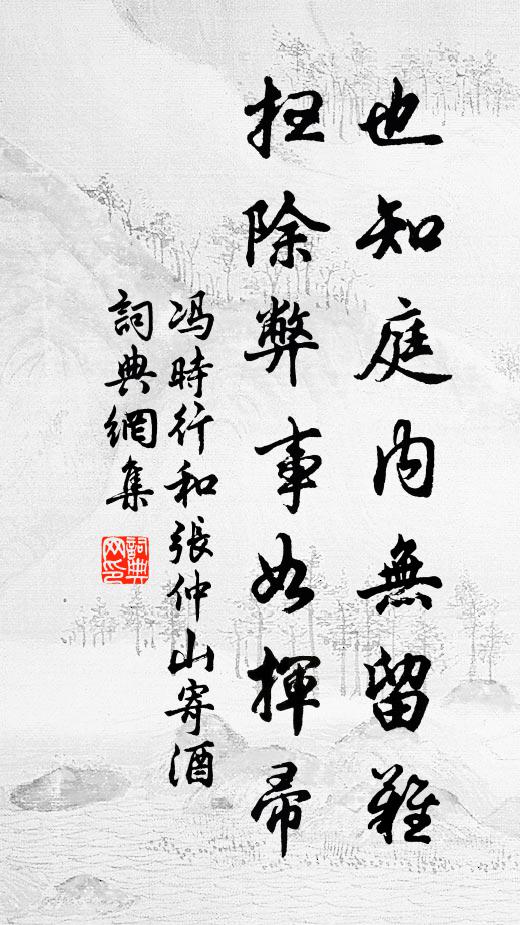 也知庭内無留難
扫除弊事如揮帚
冯時行和張仲山寄酒
詞典網集
詞典網印